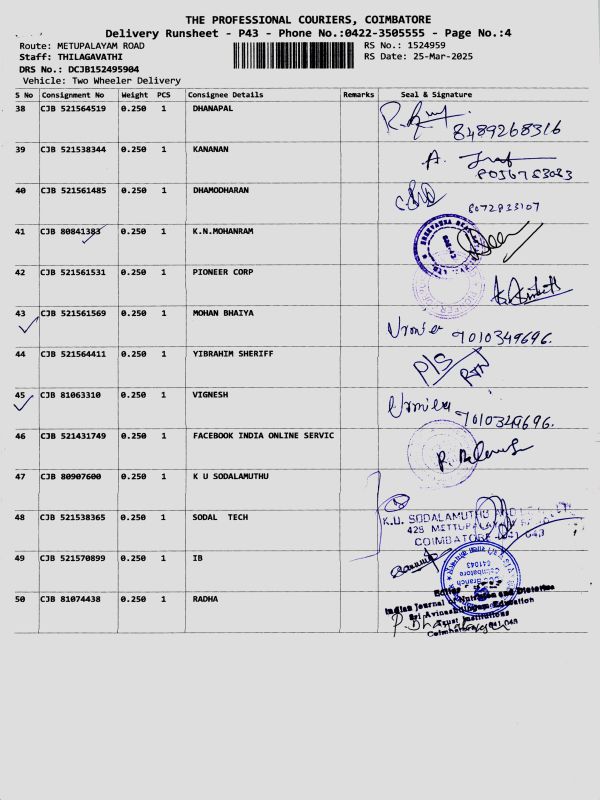 THE PROFESSIONAL COURIERS, COIMBATORE
Delivery Runsheet - P43 - Phone No.:0422-3505555 - Page No.:4
Route: METUPALAYAM ROAD RS No.: 1524959
Staff: THILAGAVATHI RS Date: 25-Mar-2025
DRS No.: DCJB152495904
Vehicle: Two Wheeler Delivery
S No Consignment No Weight PCS Consignee Details Remarks Seal & Signature
38 CJB 521564519 0.250 1 DHANAPAL
8489268316
39 CJB 521538344 0.250 1 KANANAN
8056783083
40 CJB 521561485 0.250 1 DHAMODHARAN
8072823107
41 CJB 80841383 0.250 1 K.N.MOHANRAM
42 CJB 521561531 0.250 1 PIONEER CORP
43 CJB 521561569 0.250 1 MOHAN BHAIYA
7010349696.
44 CJB 521564411 0.250 1 YIBRAHIM SHERIFF
P/S
45 CJB 81063310 0.250 1 VIGNESH
7010349696.
46 CJB 521431749 0.250 1 FACEBOOK INDIA ONLINE SERVIC
47 CJB 80907600 0.250 1 K U SODALAMUTHU
48 CJB 521538365 0.250 1 SODAL TECH
K.U. SODALAMUTHU AND
428 METTUPALAYAM
COIMBATORE - 641 043
49 CJB 521570899 0.250 1 IB
Branch
Coimbatore
641043
50 CJB 81074438 0.250 1 RADHA
Editor
Indian Journal of Nutrition and Dietetics
Sri Avinashilingam Education
Trust Institutions
Coimbatore - 641 043